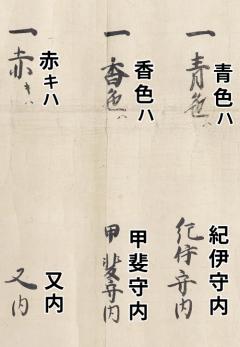 一青色ハ
青色ハ
紀伊守内
紀伊守内
一香色ハ
香色ハ
甲斐守内
甲斐守内
一赤キハ
赤キハ
又内
又内